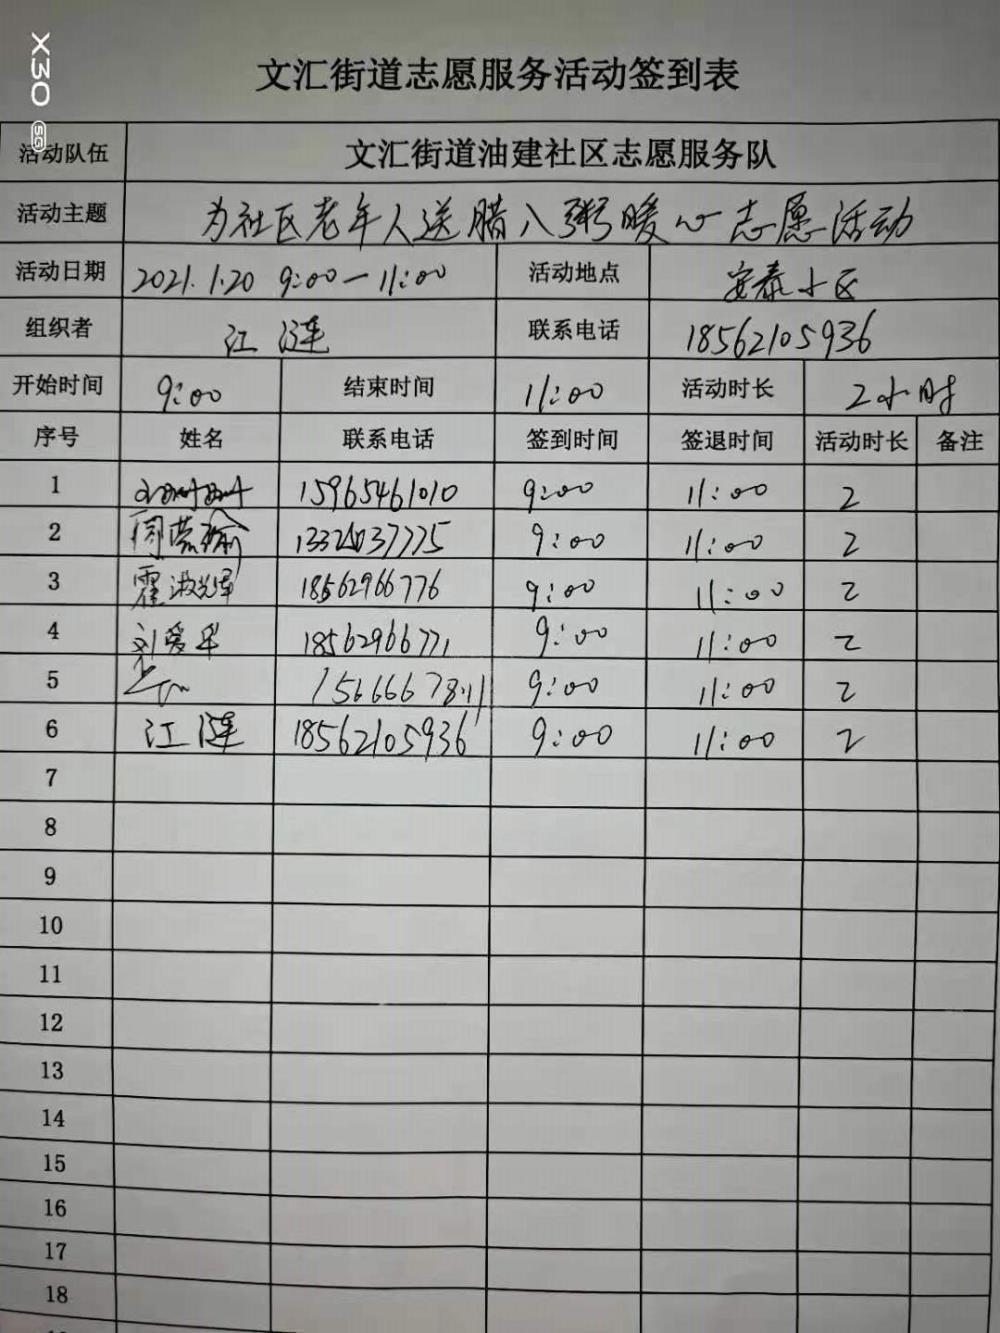 X30 5G
文汇街道志愿服务活动签到表
活动队伍 文汇街道油建社区志愿服务队
活动主题 为社区老年人送腊八粥暖心志愿活动
活动日期 2021.1.20 9:00—11:00 活动地点 安泰小区
组织者 江涟 联系电话 18562105936
开始时间 9:00 结束时间 11:00 活动时长 2小时
序号 姓名 联系电话 签到时间 签退时间 活动时长 备注
1 15965461010 9:00 11:00 2
2 9:00 11:00 2
3 霍淑 18562966776 9:00 11:00 2
4 刘爱华 18562966771 9:00 11:00 2
5 9:00 11:00 2
6 江涟 18562105936 9:00 11:00 2
7
8
9
10
11
12
13
14
15
16
17
18